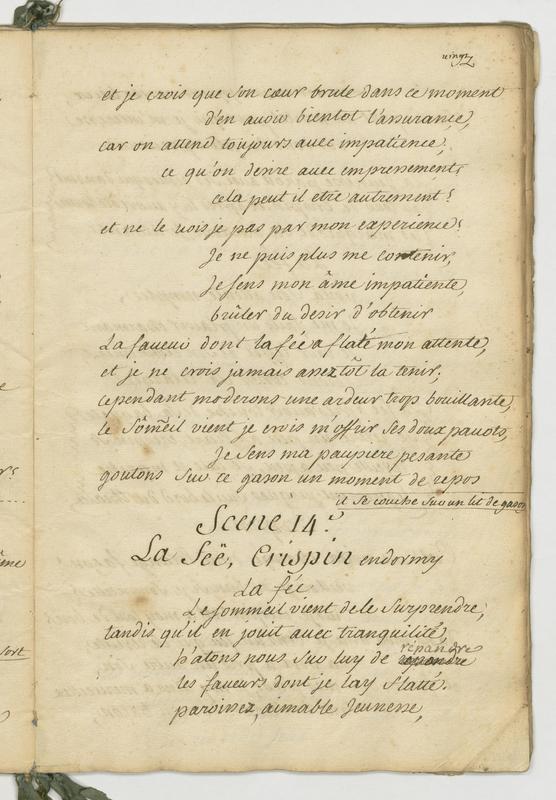 et je crois que son cœur brule dans ce moment
d'en avoir bientot l'assurance,
car on attend toujours avec impatience,
ce qu'on desire avec empressement,
cela peut il etre autrement?
et ne le vois je pas par mon experience?
Je ne puis plus me contenir,
Je sens mon âme impatiente,
brûler du desir d'obtenir
La faveur dont la fée a flaté mon attente,
et je ne crois jamais assez tôt la tenir,
cependant moderons une ardeur trop bouillante,
le sômeil vient je crois m'offrir ses doux pavots,
Je sens ma paupiere pesante
goutons sur ce gason un moment de repos
il se couche sur un lit de gason
Scene 14.e
La Feë, Crispin endormy
La fée
Le sommeil vient de le surprendre,
tandis qu'il en jouit avec tranquilité,
hâtons nous sur luy de répandre
les faveurs dont je l'ay flatté.
paroissez, aimable Jeunesse,
sort